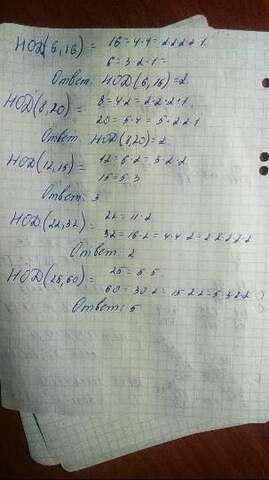 НОД(6,16) = 16=4·4=2·2·2·2·1
6=3·2·1=
Ответ: НОД(6,16)=2
НОД(8,20) = 8=4·2=2·2·2·1
20=5·4=5·2·2·1
Ответ НОД(8,20)=2
НОД(12,15) = 12=6·2=3·2·2
15=5·3
Ответ: 3
НОД(22,32) = 22=11·2
32=16·2=4·4·2=2·2·2·2·2
Ответ: 2
НОД(25,60) = 25=5·5
60=30·2=15·2·2=5·3·2·2
Ответ: 5